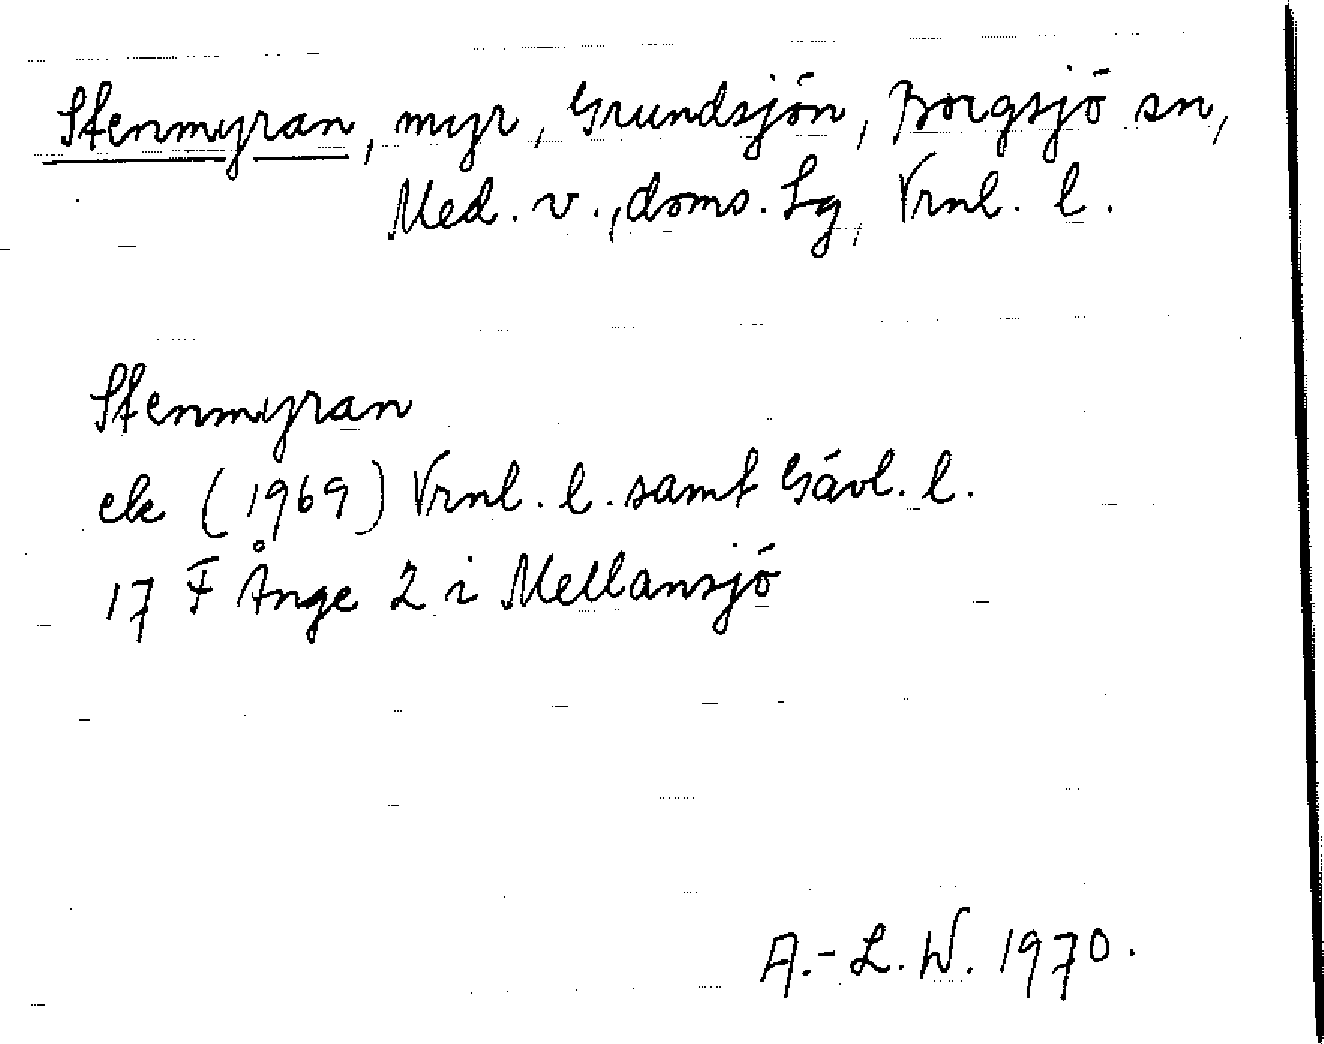 Stenmyran, myr, Grundsjön, Borgsjö sn,
Med. v., doms. Lg, Vrnl. l.
Stenmyran
ek (1969) Vrnl. l. samt Gävl. l.
17 F Ånge 2 i Mellansjö
A.-L. W. 1970.